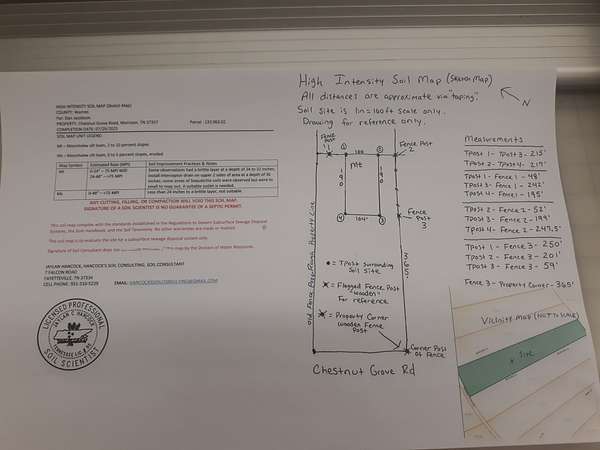 HIGH INTENSITY SOIL MAP (SKATCH MAP)
COUNTY: Warren
For: Dan Jacobson
PROPERTY: Chestnut Grove Road, Morrison, TN 37357 Parcel:
COMPLETION DATE:
SOIL MAP UNIT LEGEND:
Mt – silt loam, 2 to 10 percent slopes
silt loam, 5 to 9 percent slopes, eroded
Map Symbol Estimated Rate (MPI) Soil Improvement Practices & Notes
Mt 0-24" – 75 MPI
24-48" – >75 MPI
Some observations had a brittle layer at a depth of 24 to 32 inches,
install interceptor drain on upper 2 sides of area at a depth of
inches; some areas of soils were observed but were to
small to map out. A suitable outlet is needed.
0-48" – >75 MPI Less than 24 inches to a brittle layer, not suitable.
ANY CUTTING, FILLING, OR COMPACTION WILL VOID THIS SOIL MAP.
SIGNATURE OF A SOIL SCIENTIST IS NO GUARANTEE OF A SEPTIC PERMIT.
This soil map complies with the standards established in the Regulations to Govern Subsurface Sewage Disposal
Systems, the Soils Handbook, and the Soil Taxonomy. No other warranties are made or implied.
This soil map is to evaluate the site for a subsurface sewage disposal system only.
Signature of Soil Consultant does map by the Division of Water Resources.
JAYLAN HANCOCK, HANCOCK'S SOIL CONSULTING, SOIL CONSULTANT
7 FALCON ROAD
FAYETTEVILLE, TN 37334
CELL PHONE: 931-310-5229 EMAIL:
LICENSED PROFESSIONAL
JAYLAN C. HANCOCK
SOIL SCIENTIST
High Intensity Soil Map (Sketch Map)
All distances are approximate via "taping".
Soil site is 1in=100ft scale only.
Drawing for reference only.
N
Fence Post 1
1
100
2
Fence Post 2
Mt
190
190
4
104'
3
Fence Post 3
365'
Old Fence Posts/Rough Property Line
● = Tpost Surrounding Soil Site
= Flagged Fence Post "wooden" For reference
= Property Corner wooden Fence Post
Corner Post of Fence
Chestnut Grove Rd
Measurements
Tpost 1 - Tpost 3 - 215'
Tpost 2 - Tpost 4 - 217'
Tpost 1 - Fence 1 - 48'
Tpost 3 - Fence 1 - 242'
Tpost 4 - Fence 1 - 195'
Tpost 2 - Fence 2 - 52'
Tpost 3 - Fence 2 - 199'
Tpost 4 - Fence 2 - 247.5'
Tpost 1 - Fence 3 - 250'
Tpost 2 - Fence 3 - 201'
Tpost 3 - Fence 3 - 59'
Fence 3 - Property Corner - 365'
Vicinity Map (NOT TO SCALE)
* Site